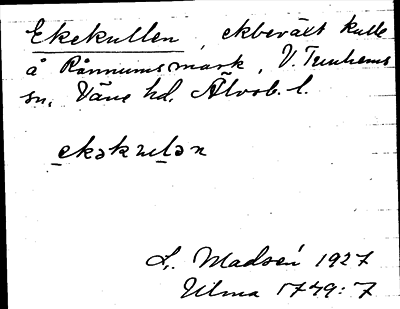 Ekekullen, ekbeväxt kulle
å Rånnums mark, V. Tunhems
sn, Väne hd, Älvsb. l.
ekəkuɩən
L. Madsén 1927
Ulma 1749:7